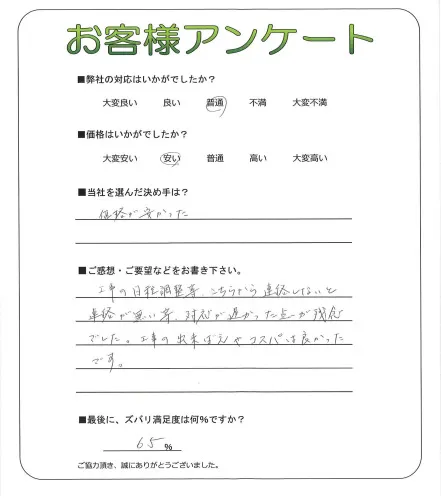 お客様アンケート
■弊社の対応はいかがでしたか?
大変良い 良い 普通 不満 大変不満
■価格はいかがでしたか?
大変安い 安い 普通 高い 大変高い
■当社を選んだ決め手は?
価格が安かった
■ご感想・ご要望などをお書き下さい。
工事の日程調整等、こちらから連絡しないと
連絡が無い等、対応が遅かった点が残念
でした。工事の出来ばえやコスパは良かった
です。
■最後に、ズバリ満足度は何%ですか?
65%
ご協力頂き、誠にありがとうございました。